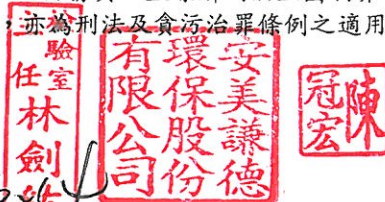 ，亦為刑法及貪污治罪條例之適用
檢驗室
任林劍
安美謙德
環保股份
有限公司
陳
冠宏